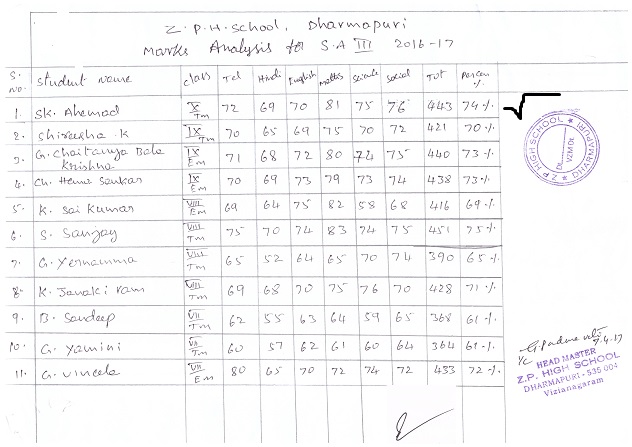 Z.P.H. School, Dharmapuri
Marks Analysis for S.A III 2016-17
S. no. Student name class Tel Hindi English maths Science Social Tot Percen %
1. Sk. Ahemad X Tm 72 69 70 81 75 76 443 74%
2. Shireesha. K IX Tm 70 65 69 75 70 72 421 70%
3. G. Chaitanya Bala Krishna IX Em 71 68 72 80 74 75 440 73%
4. Ch. Hema Sankar IX Em 70 69 73 79 73 74 438 73%
5. K. Sai Kumar VIII Em 69 64 75 82 58 68 416 69%
6. S. Sanjay VIII Tm 75 70 74 83 74 75 451 75%
7. G. Yernamma VIII Tm 65 52 64 65 70 74 390 65%
8. K. Janaki ram VIII Tm 69 68 70 75 76 70 428 71%
9. B. Sandeep VII Tm 62 55 63 64 59 65 368 61%
10. G. Yamini VII Tm 60 57 62 61 60 64 364 61%
11. G. Vineela VII Em 80 65 70 72 74 72 433 72%
Z.P. HIGH SCHOOL DHARMAPURI
VZM Dt
7.4.17
HEAD MASTER
Z.P. HIGH SCHOOL
DHARMAPURI - 535 004
Vizianagaram